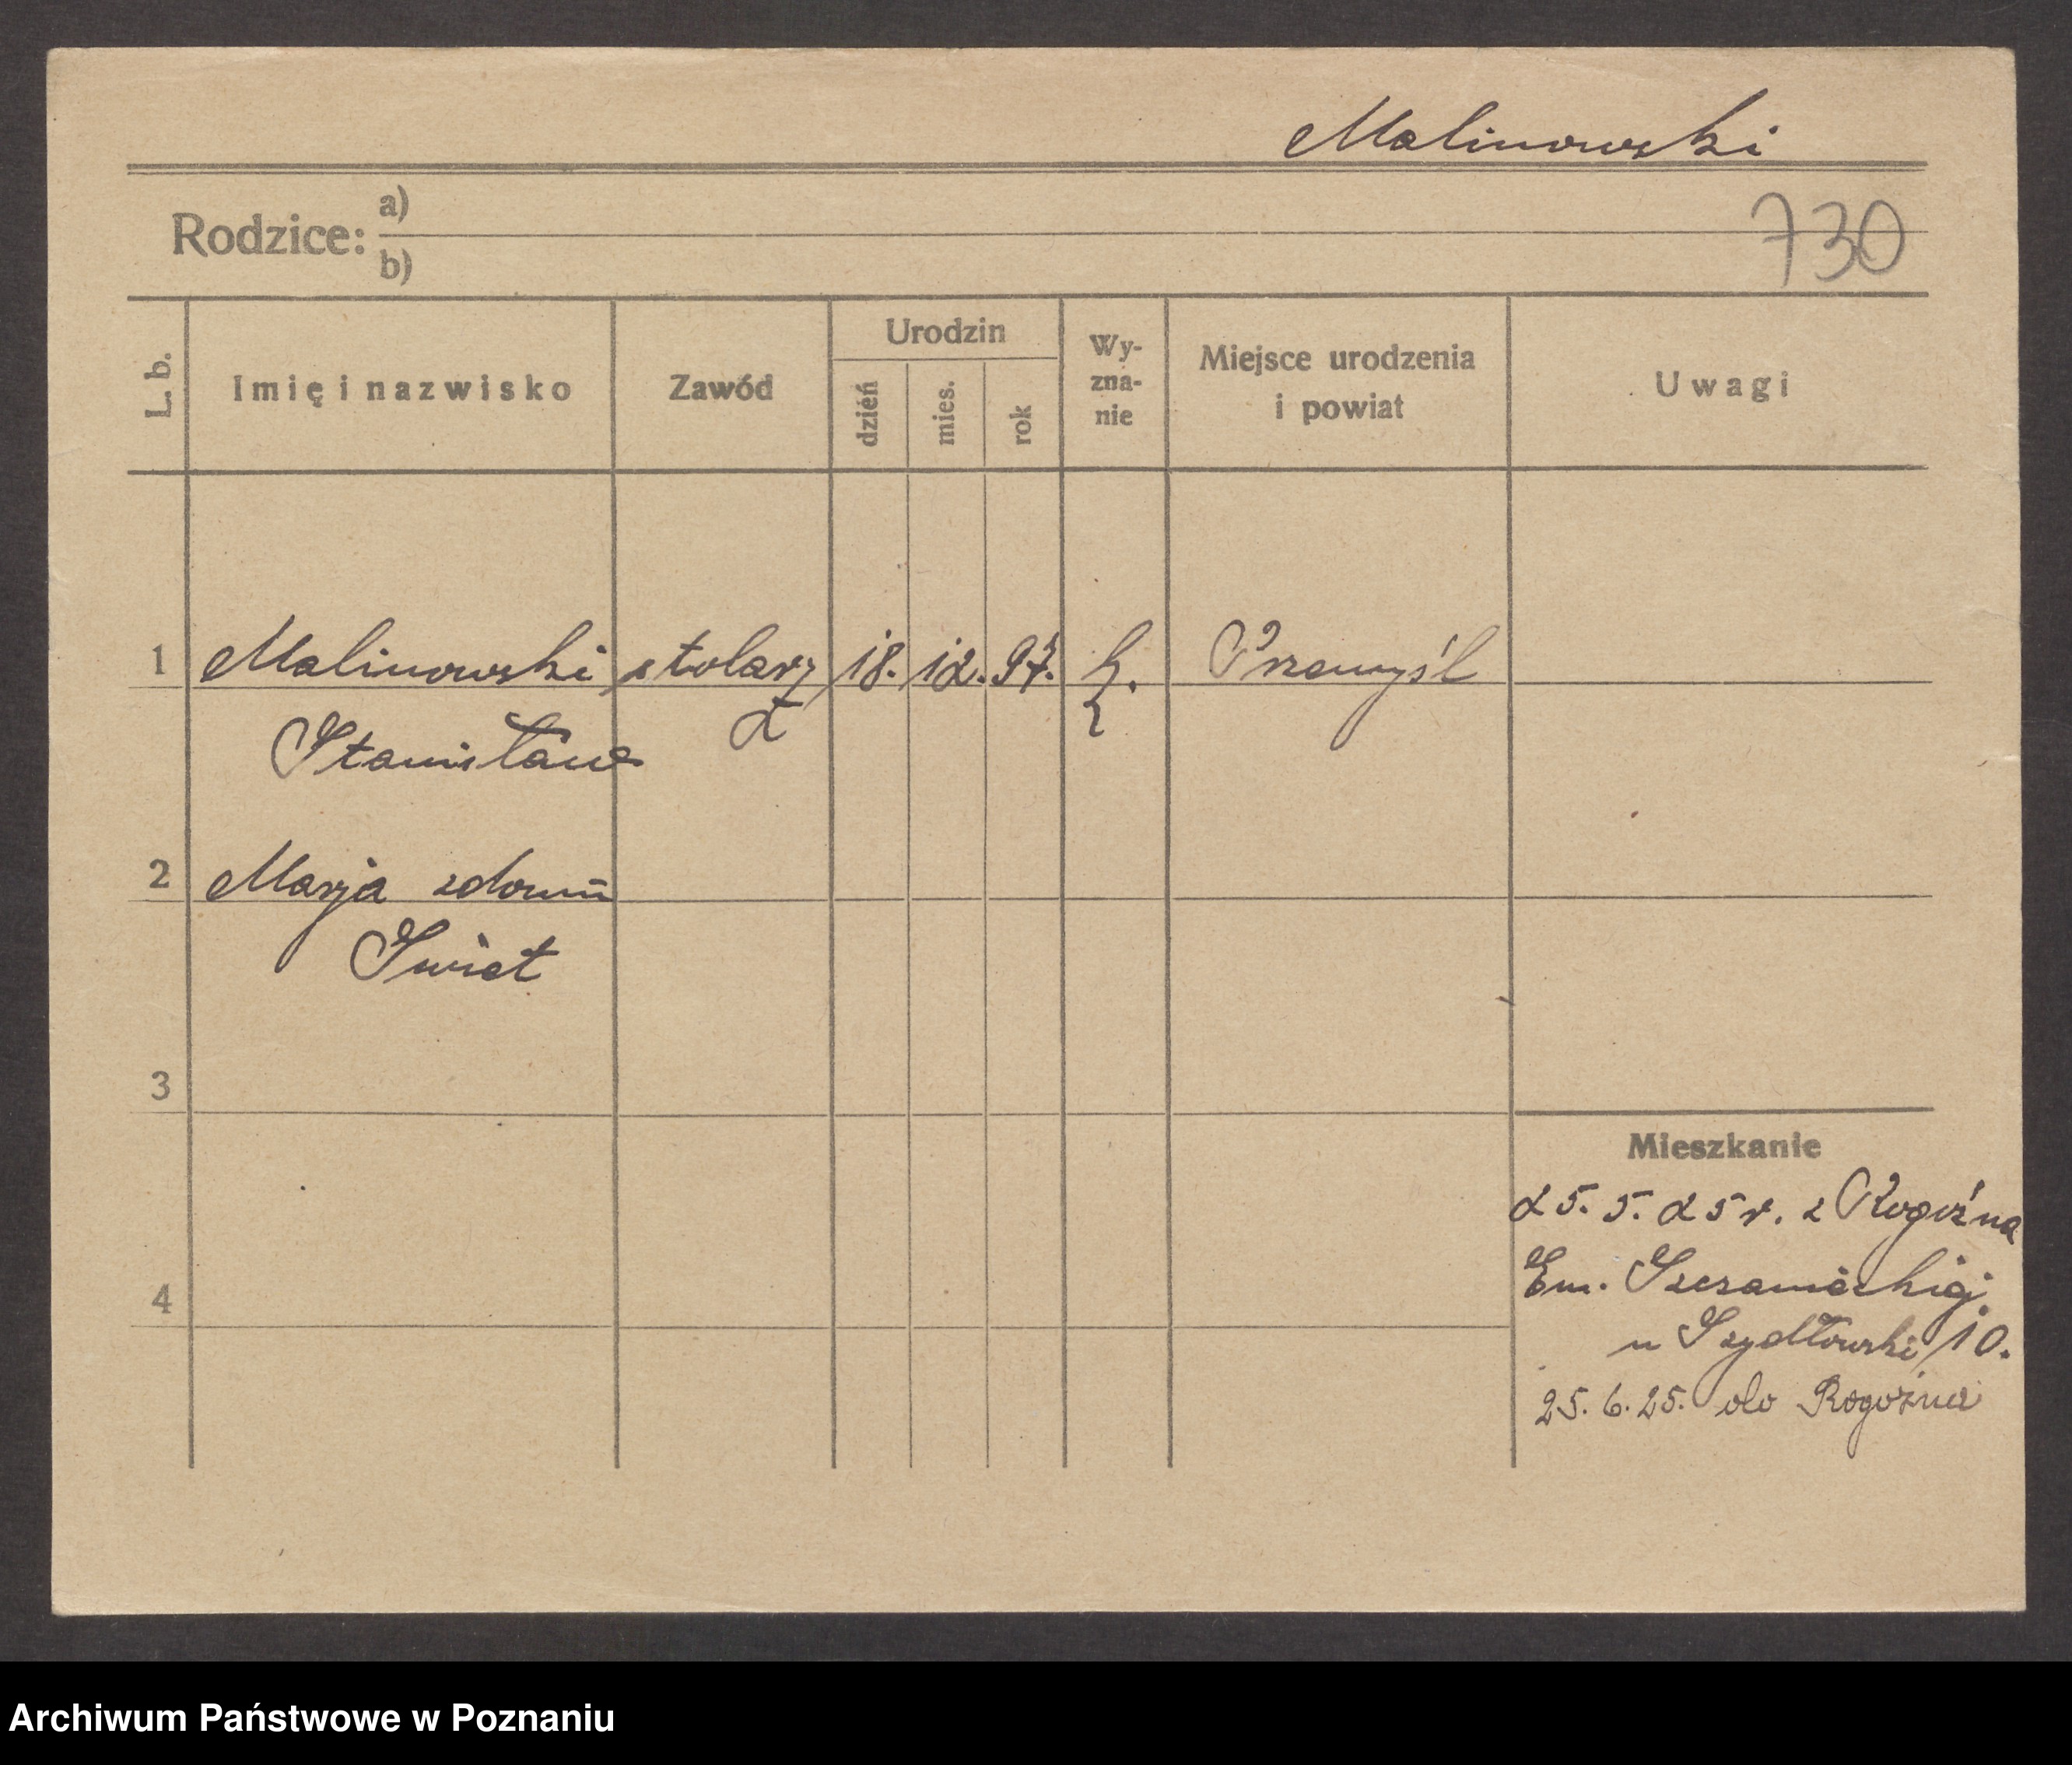 Malinowski
730
Rodzice: a)
b)
L. b. Imię i nazwisko Zawód Urodzin dzień mies. rok Wyznanie Miejsce urodzenia i powiat Uwagi
1 Malinowski stolarz 18. 12. 97. k. Przemyśl
Stanisław Ż
2 Marja z domu
Swiet
3
4
Mieszkanie
25. 5. 25 r. z Rogoźna
Em. Szczanieckiej
u Szydłowski 10.
25. 6. 25. do Rogoźna
Archiwum Państwowe w Poznaniu